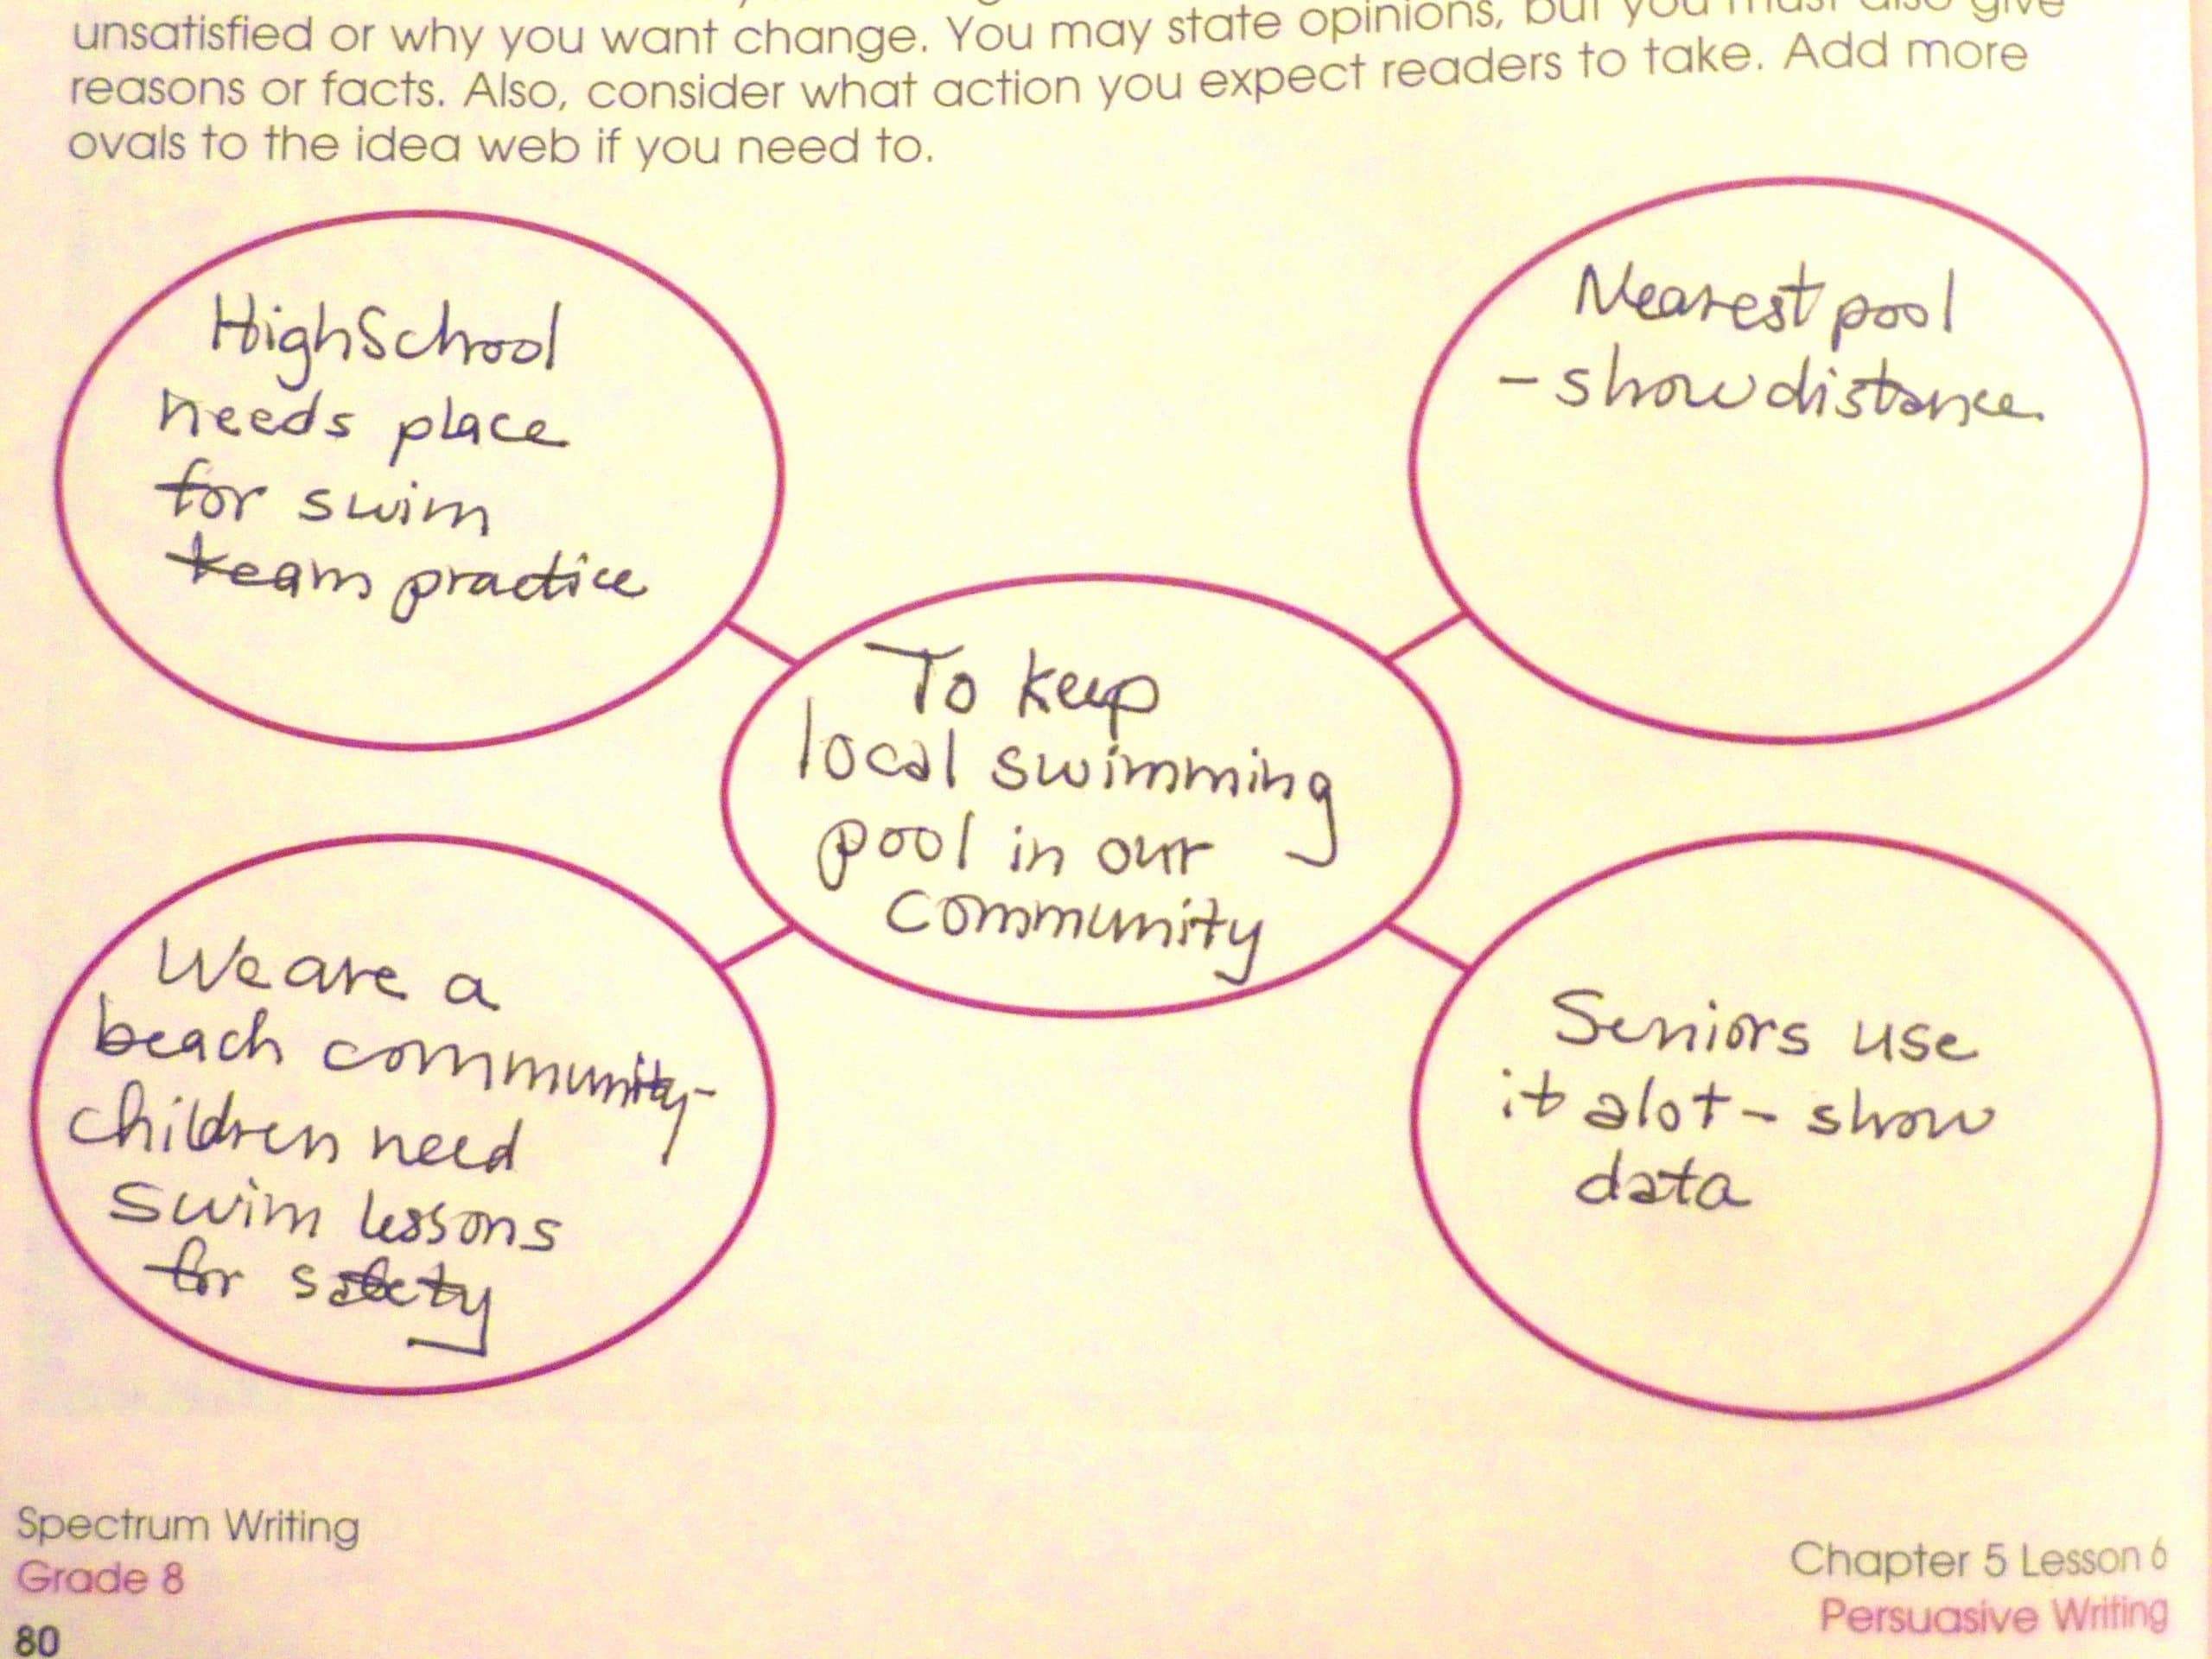 unsatisfied or why you want change. You may state opinions, but you must also give
reasons or facts. Also, consider what action you expect readers to take. Add more
ovals to the idea web if you need to.
High School
needs place
for swim
team practice
Nearest pool
- show distance
To keep
local swimming
pool in our
community
We are a
beach community-
children need
swim lessons
for safety
Seniors use
it alot - show
data
Spectrum Writing
Grade 8
80
Chapter 5 Lesson 6
Persuasive Writing